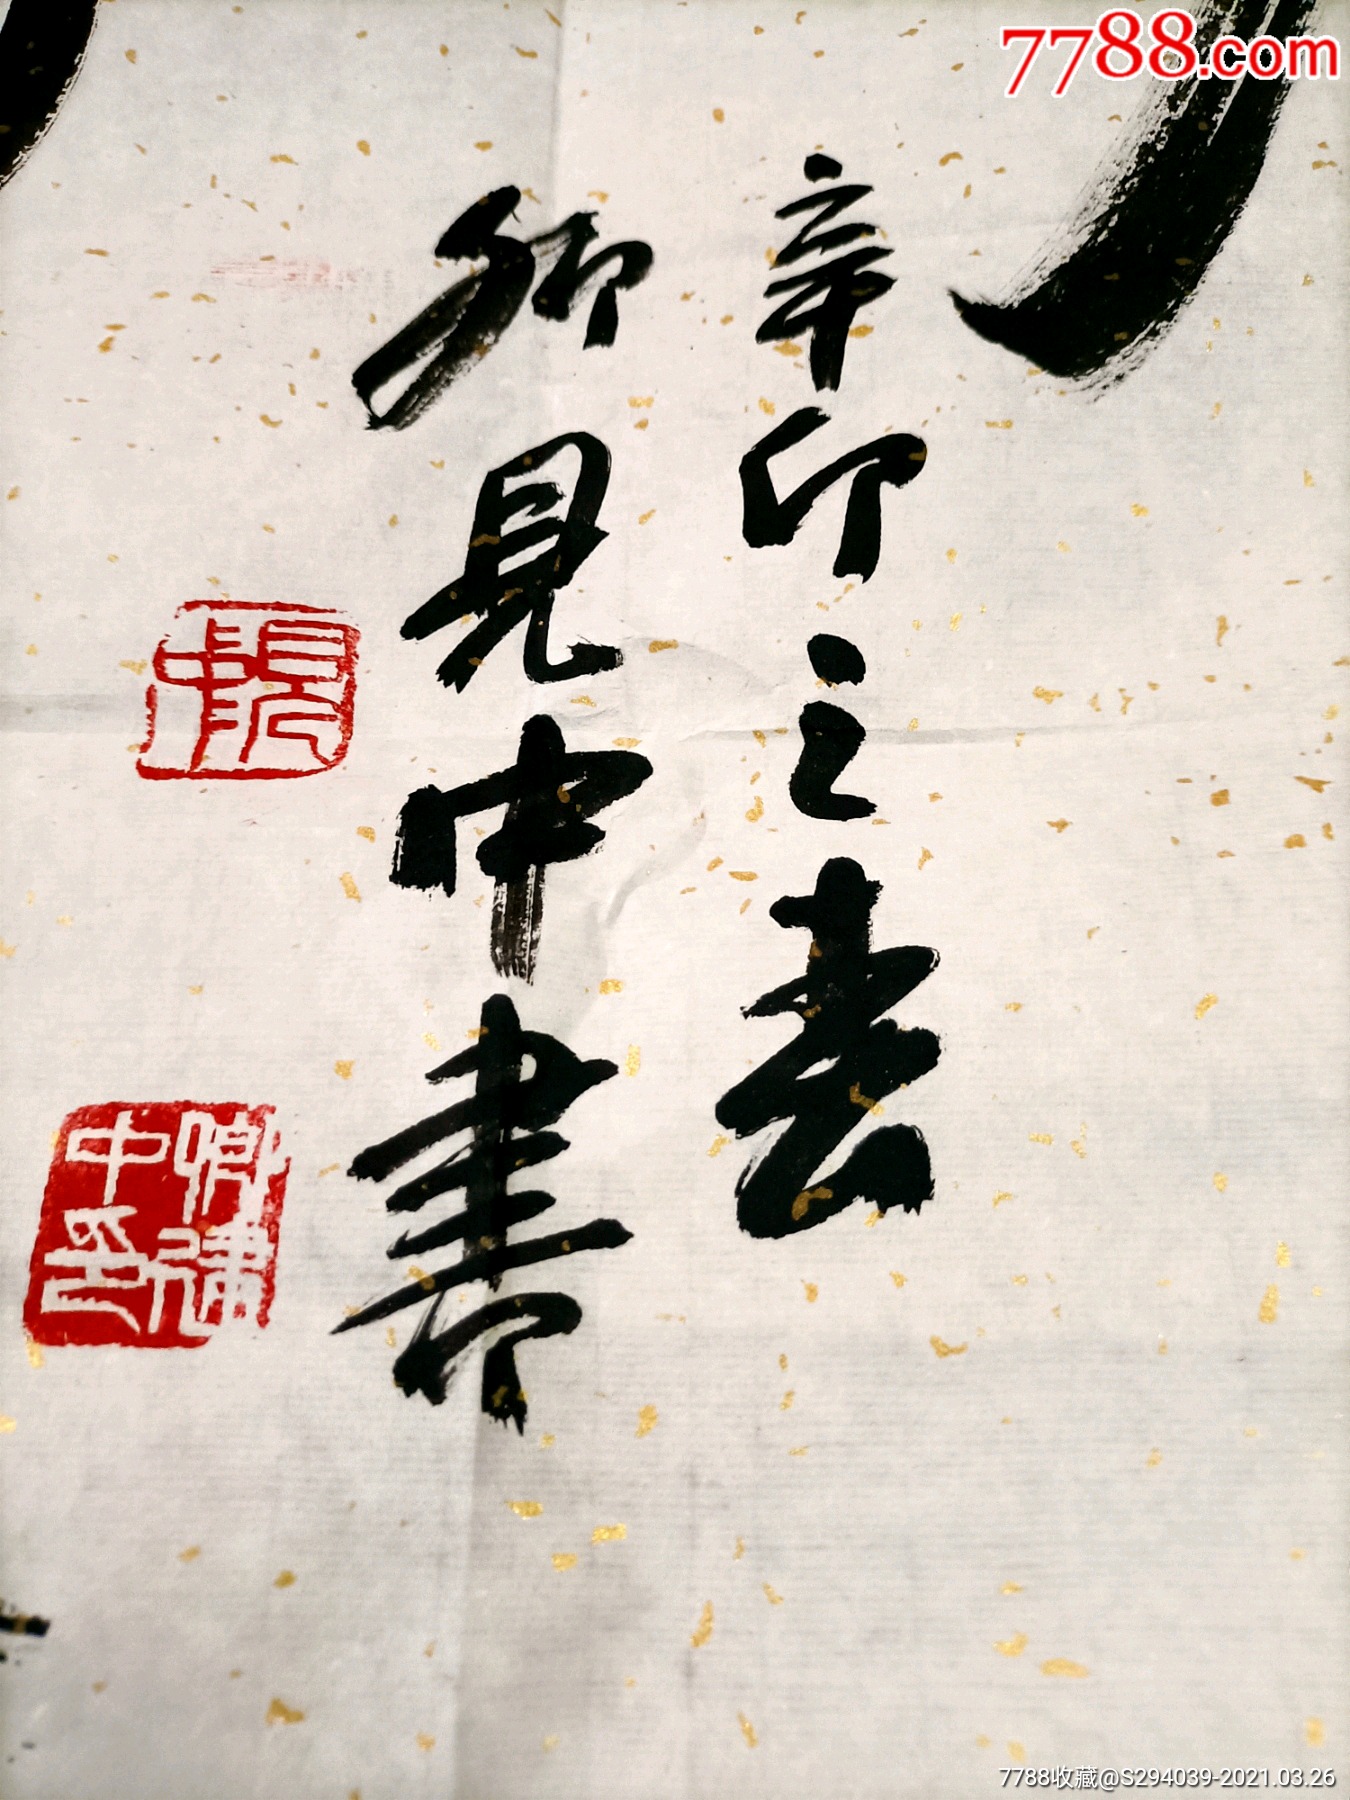 7788.com
辛卯之春
卿見中書
見中
7788收藏@S294039-2021.03.26